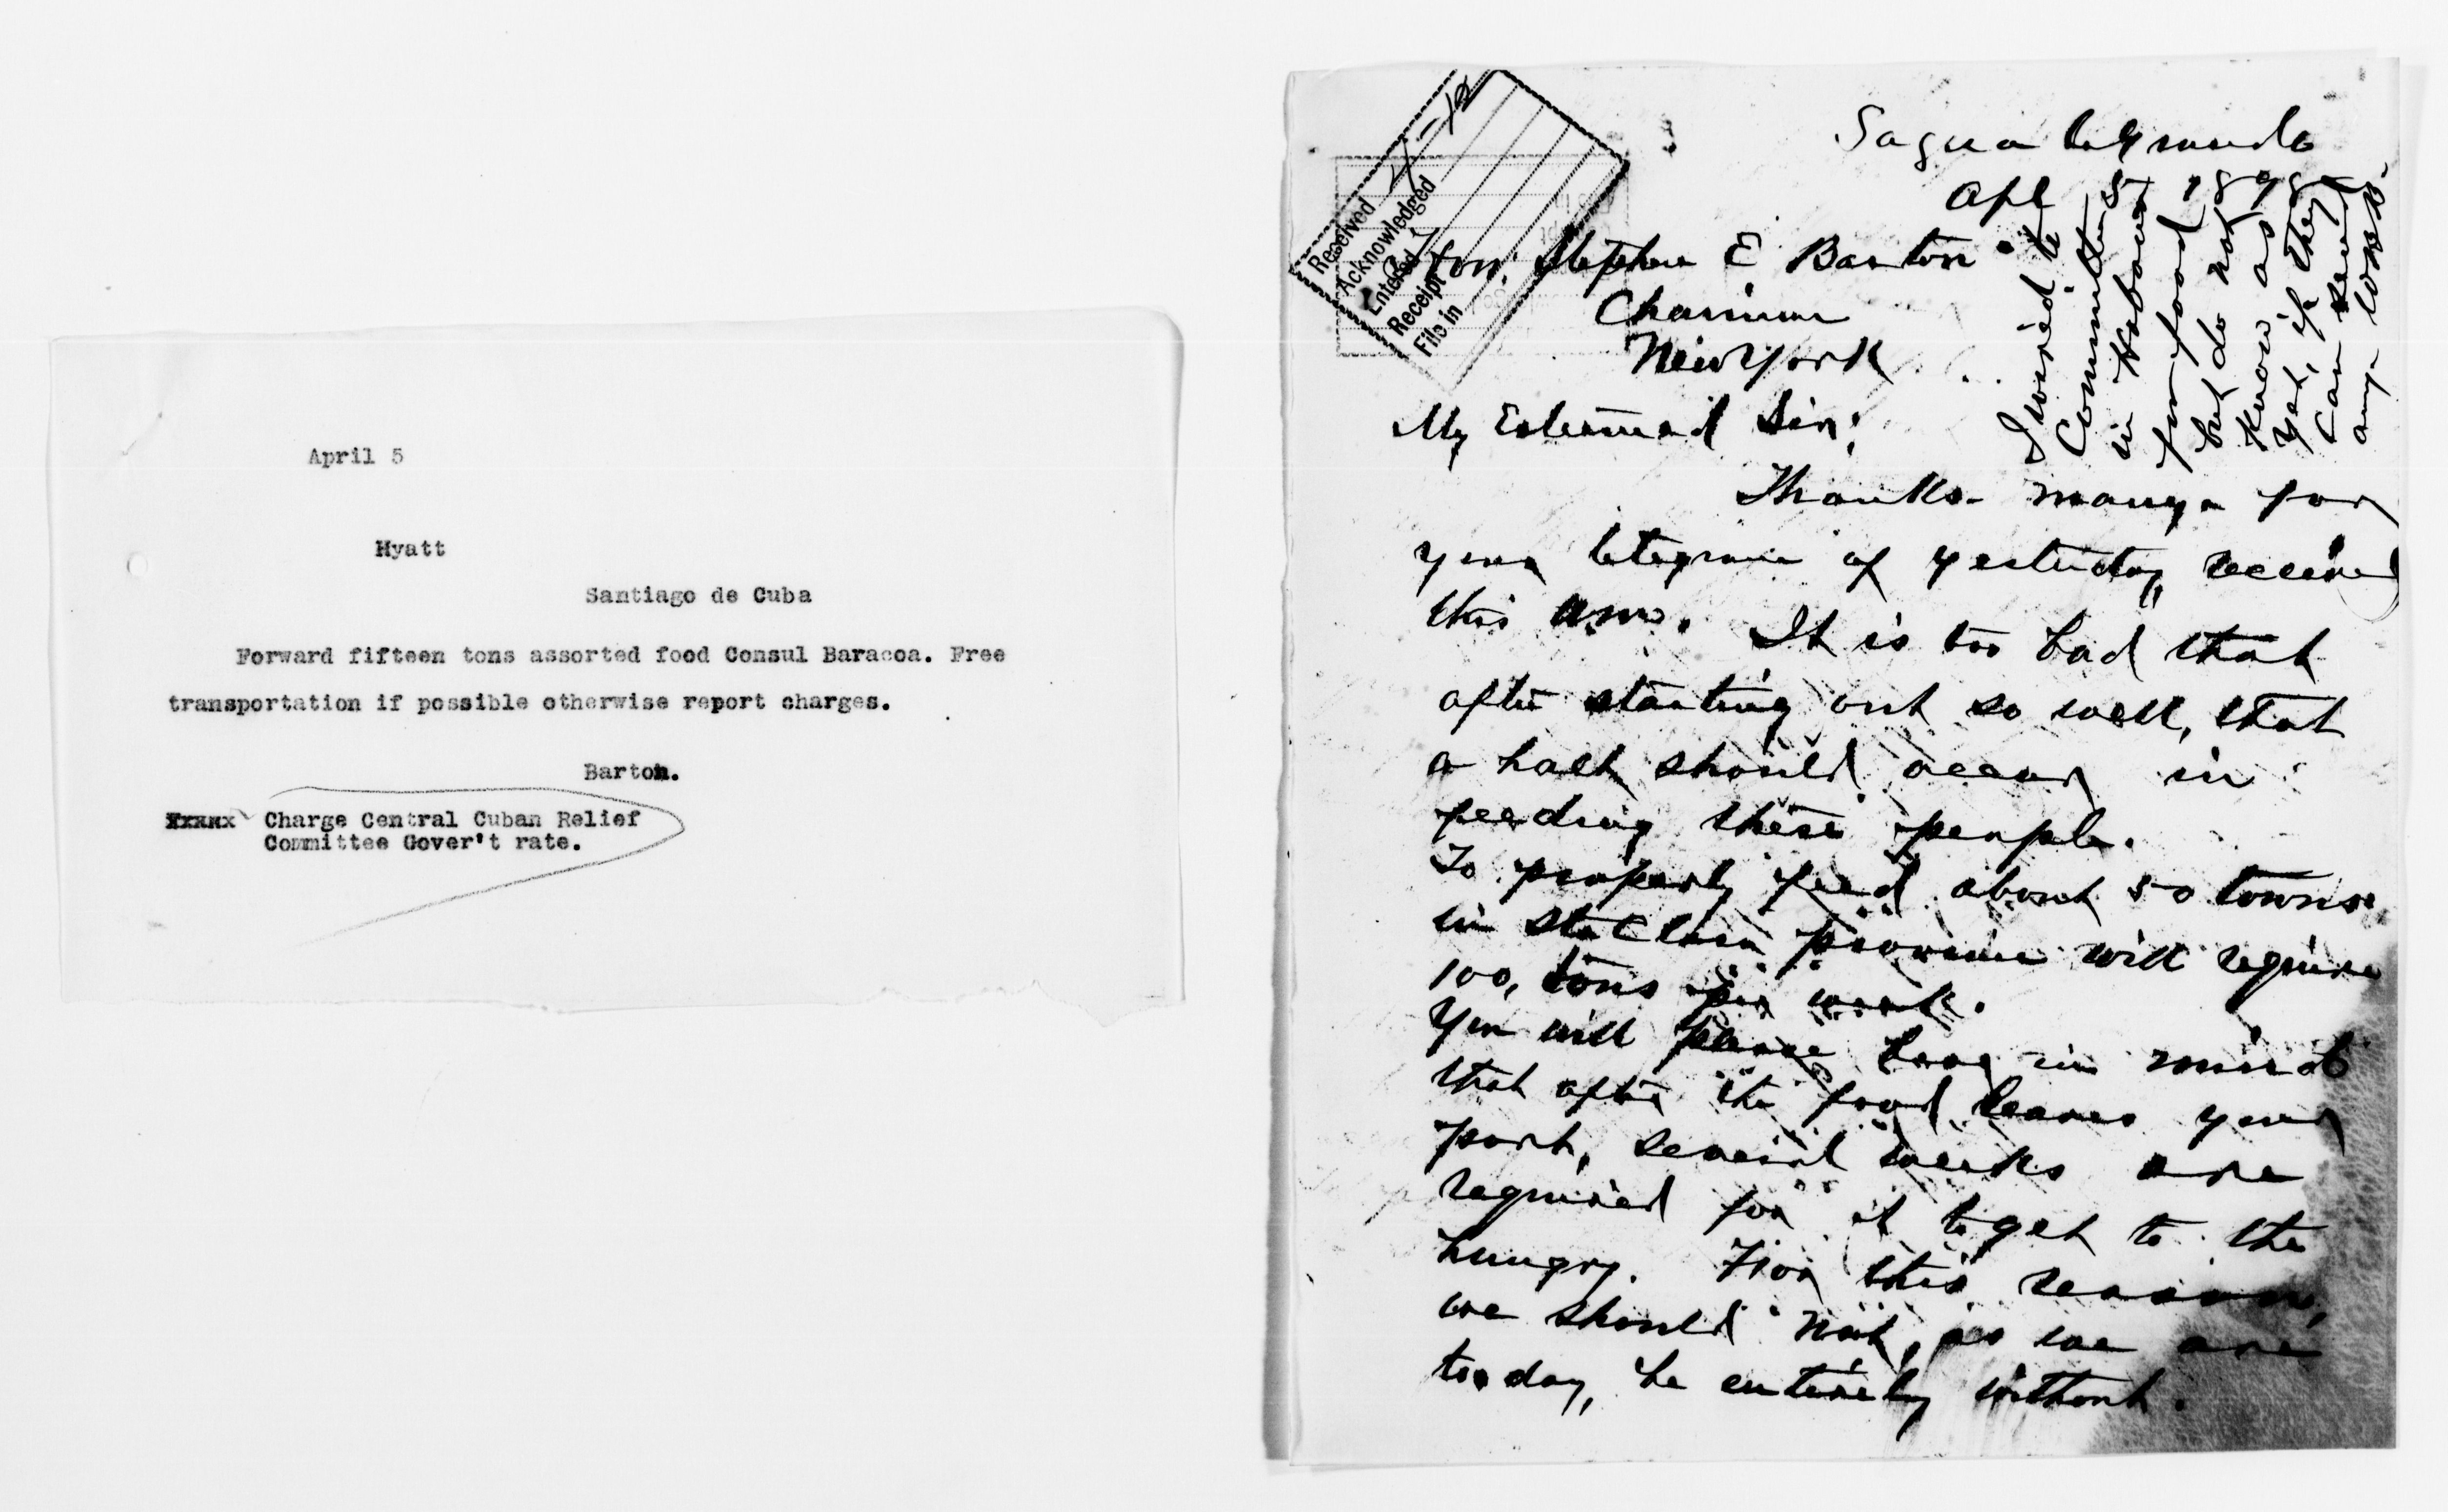 April 5
Hyatt
Santiago de Cuba
Forward fifteen tons assorted food Consul Baracoa. Free
transportation if possible otherwise report charges.
Barton.
Charge Central Cuban Relief
Committee Gover't rate.
Received
Acknowledged
Entered
Receipt
File in
Sagua la Grande
Apl 5, 1898
Hon. Stephen E Barton
Chairman
New York
My Esteemed Sir:
Thanks many for
your telegram of yesterday, received
this am. It is too bad that
after starting out so well, that
a halt should occur in
feeding these people.
To properly feed about 50 towns
in Sta Clara province will require
100, tons per week.
You will please bear in mind
that after the food leaves your
port, several weeks are
required for it to get to the
hungry. For this reason,
we should not, as we are
to day, be entirely without.
I wired to
Committee
in Habana
for food
but do not
know as
yet, if they
can send
any